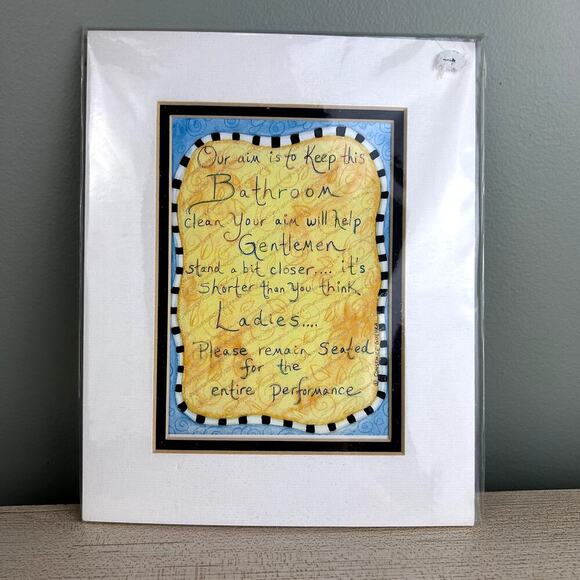 Our aim is to Keep this
Bathroom
clean Your aim will help
Gentlemen
stand a bit closer.... it's
shorter than you think
Ladies....
Please remain seated
for the
entire performance